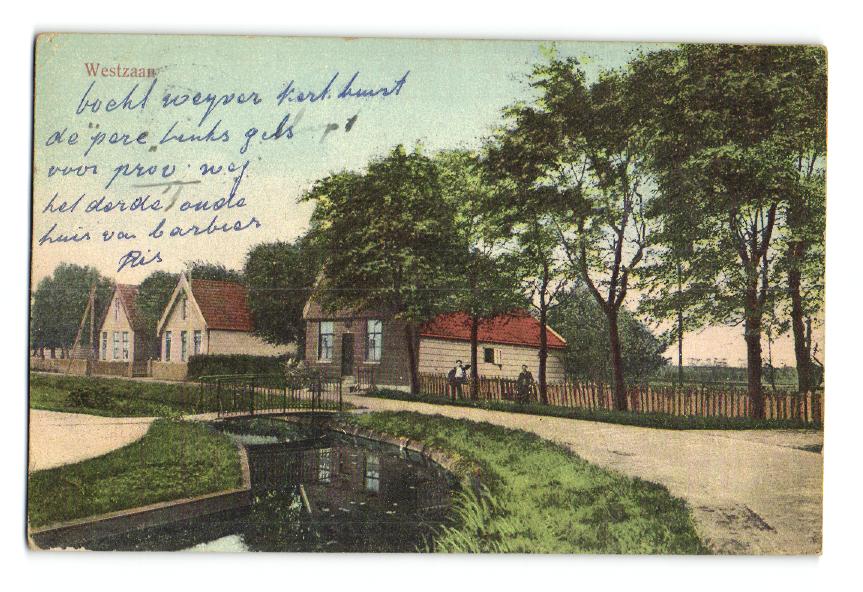 Westzaan
bocht weyver kerk buurt
de pere links gils
voor prov. weg
het derde oude
huis van barbier
Ris